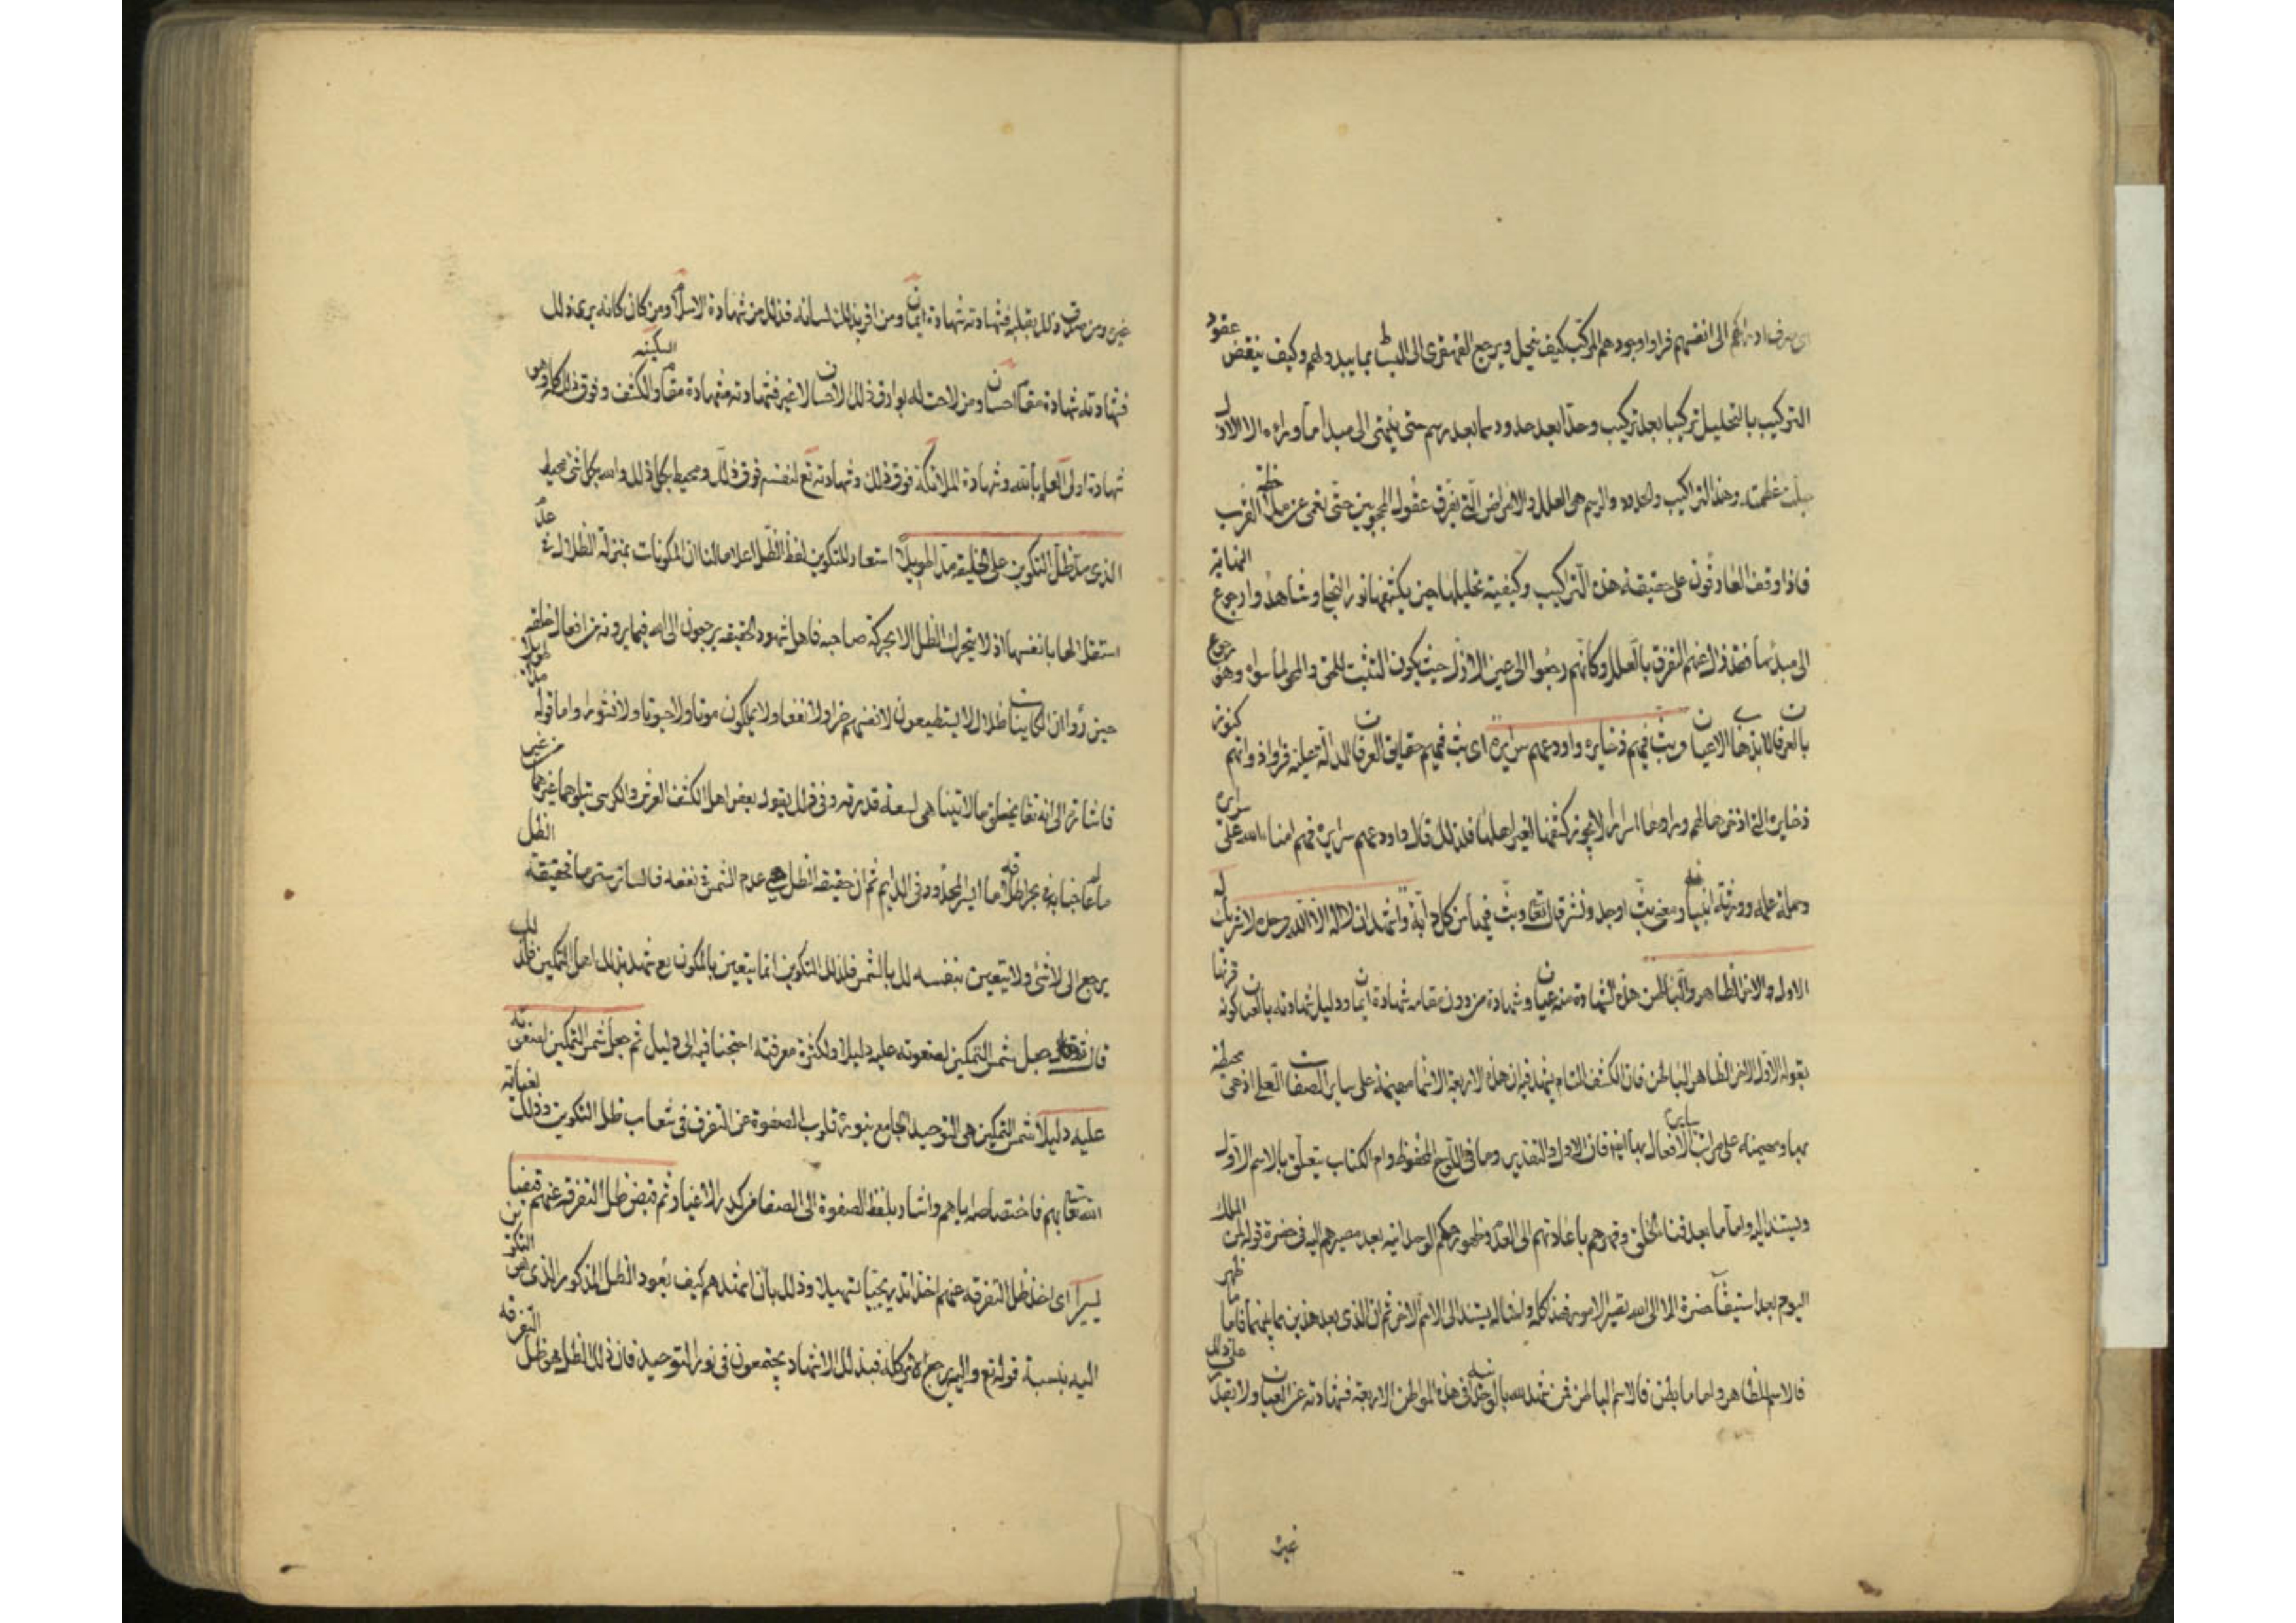 الى انفسهم فراوا وجودهم المركب كيف ينحل ويرجع القهقرى الى البسائط بما يبدو لهم وكيف ينتقض عقود
التركيب بالتحليل تركيبا بعد تركيب وحدا بعد حدود رسما بعد رسم حتى ينتهى الى مبدأ ما وراءه الا الازل
جلت عظمته وهذه التراكيب والحدود والرسم هى العلل والامراض التى تفرق عقول المحجوبين حتى تعمى عن ملاحظة القرب
فاذا وقف العارفون على حقيقة هذه التراكيب وكيفية تحليلها حين يكشفها نور التجلى وشاهدوا رجوع النهاية
الى مبدئها فقد زال عنهم التفرق بالعلل وكانهم رجعوا الى عين الازل حيث يكون التثبت للحق والمحو لما سواه وهو رجوع
بالعرفان لا بذهاب الاعيان وبث فيهم ذخايره واودعهم سرايره اى بث فيهم حقايق العرفان الدالة عليه فراوا ذواتهم كنوز
ذخايره التى اذخرها لهم وراوها اسرارا لا يجوز كشفها لغير اهلها فلذلك قال واودعهم سرايره فهم امناء الله على سرايره
وحملة علمه وورثة انبيائه ومعنى بث اوجد ونشر قال تعالى وبث فيها من كل دابة واشهد ان لا اله الا الله وحده لا شريك له
الاول والاخر الظاهر والباطن هذه الشهادة منه عيان وشهادة من دون مقامه شهادة ايمان ودليل شهادته بالعيان كونه قرنها
بقوله الاول الاخر الظاهر الباطن فان الكشف التام يشهد فيه ان هذه الاربعة الاسماء مهيمنة على ساير الصفات العلى اذ هى محيطة
بها ومهيمنة على مراتب الافعال بها ايضا فان الاول والتقدير وما فى اللوح المحفوظ وام الكتاب يتعلق بالاسم الاول
ويستند اليه واما ما بعد فناء الخلق وقهرهم باعادتهم الى العدم وظهور حكم الوحدانية بعد مصيرهم اليه فى حضرة قوله لمن الملك
اليوم بعد استيفاء حضرة الا الى الله تصير الامور فهذا كله وامثاله يستند الى الاسم الاخر ثم ان الذى بعد هذين مما بينهما فاما ما ظهر
فالاسم الظاهر واما ما بطن فالاسم الباطن فمن شهد الوحدانية فى هذه المواطن الاربعة فشهادته عن العيان ولا يقدر على ذلك
غيره
غيره ومن صدق ذلك بقلبه فشهادته شهادة ايمان ومن اقر بذلك لسانه فذلك من شهادة الاسلام ومن كان كانه يرى ذلك
فشهادته شهادة مقام احسان ومن لاحت له بوارق ذلك الاحسان لا غير فشهادته شهادة مقام السكينة والكشف وفوق ذلك كله وهو
شهادة اولى العلم بالله وشهادة الملائكة فوق ذلك وشهادته تع لنفسه فوق ذلك ومحيط بكل ذلك والله بكل شئ محيط
الذى مد ظل التكوين على الخليقة مدا طويلا استعار للتكوين لفظ الظل اعلاما لنا ان المكونات بمنزلة الظلال فى عدم
استقلالها بانفسها اذ لا يتحرك الظل الا بحركة صاحبه فاهل شهود الحقيقة يرجعون الى الله فيما يرونه من افعال خلقه
حين رؤوا ان الكاينات ظلال لا يستطيعون لانفسهم ضرا ولا نفعا ولا يملكون موتا ولا حيوة ولا نشورا واما قوله مدا طويلا
فاشارة الى انه تعالى يخلق ما لا يتناهى لسعة قدرته وفى ذلك يقول بعض اهل الكشف العرش والكرسى يتلوهما غيرهما من غير
ما غاية فى بحر اطلاقه ما ايسر المحدود فى الدايم ثم ان حقيقة الظل هى عدم الشمس فى بقعة ما لساتر سترها فحقيقة الظل
يرجع الى لا شئ ولا يتعين بنفسه بل بالشمس فلذلك التكوين انما يتعين بالمكون تع شهد بذلك اهل التمكين فلذلك
قال ثم جعل شمس التمكين لصفوته عليه دليلا ولكثرة معرفته احتجنا فيه الى دليل ثم جعل شمس التمكين لصفوته
عليه دليلا شمس التمكين هى التوحيد الجامع بنوره قلوب الصفوة عن التفرق فى شعاب ظل التكوين وذلك لعناية
الله تعالى بهم فاختصاصه اياهم واشار بلفظ الصفوة الى الصفا من كدر الاغيار ثم قبض ظل التفرقة عنهم قبضا
يسيرا اى اخذ ظل التفرقة عنهم اخذا تدريجيا تسهيلا وذلك بان اشهدهم كيف يعود الظل المذكور الذى هو التكوين
اليه بنسبة قوله تع واليه يرجع الامر كله فبذلك الاشهاد يجتمعون فى نور التوحيد فان ذلك الظل هو ظل التفرقة